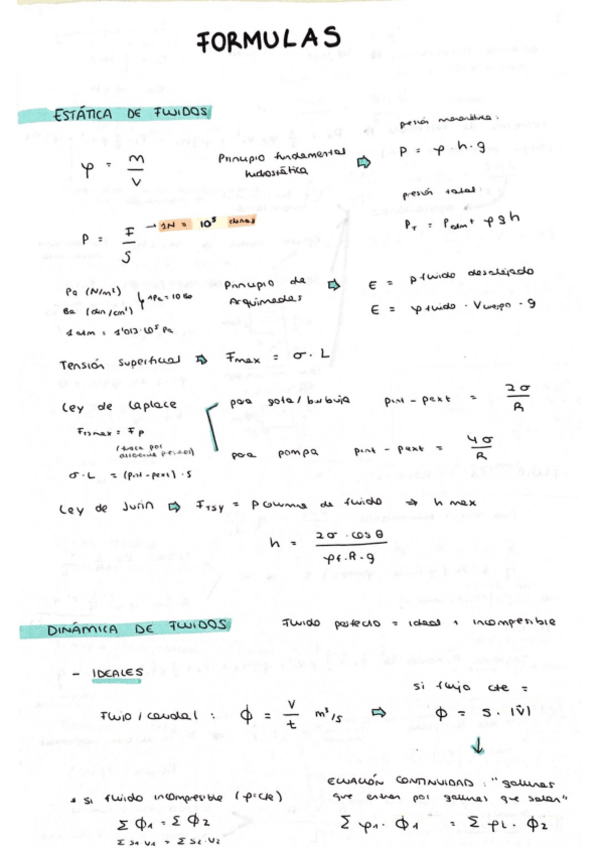 FORMULAS
ESTÁTICA DE FLUIDOS
φ = m/V
Principio fundamental hidrostática ⇨
presión manométrica:
P = φ · h · g
presión total:
P_T = P_atm + φgh
P = F/S → 1N = 10⁵ dinas
Pa (N/m²)
Ba (din/cm²)
1Pa = 10 Ba
1 atm = 1'013·10⁵ Pa
Principio de Arquímedes ⇨
E = p fluido desalojado
E = φ fluido · V cuerpo · g
Tensión superficial ⇨ F max = σ · L
Ley de Laplace
F TS max = F p
(fuerza por diferencia presión)
σ · L = (pint - pext) · S
para gota/burbuja pint - pext = 2σ/R
para pompa pint - pext = 4σ/R
Ley de Jurin ⇨ F TSy = P columna de fluido ⇒ h max
h = 2σ · cos θ / φf · R · g
DINÁMICA DE FLUIDOS
Fluido perfecto = ideal + incompresible
- IDEALES
Flujo / caudal : ϕ = V/t m³/s ⇨
si flujo cte =
ϕ = S · |v̄|
↓
ECUACIÓN CONTINUIDAD : "gallinas
que entran por gallinas que salen"
Σ φ₁ · ϕ₁ = Σ φ₂ · ϕ₂
* Si fluido incompresible (φ=cte)
Σ ϕ₁ = Σ ϕ₂
Σ S₁ V₁ = Σ S₂ · V₂